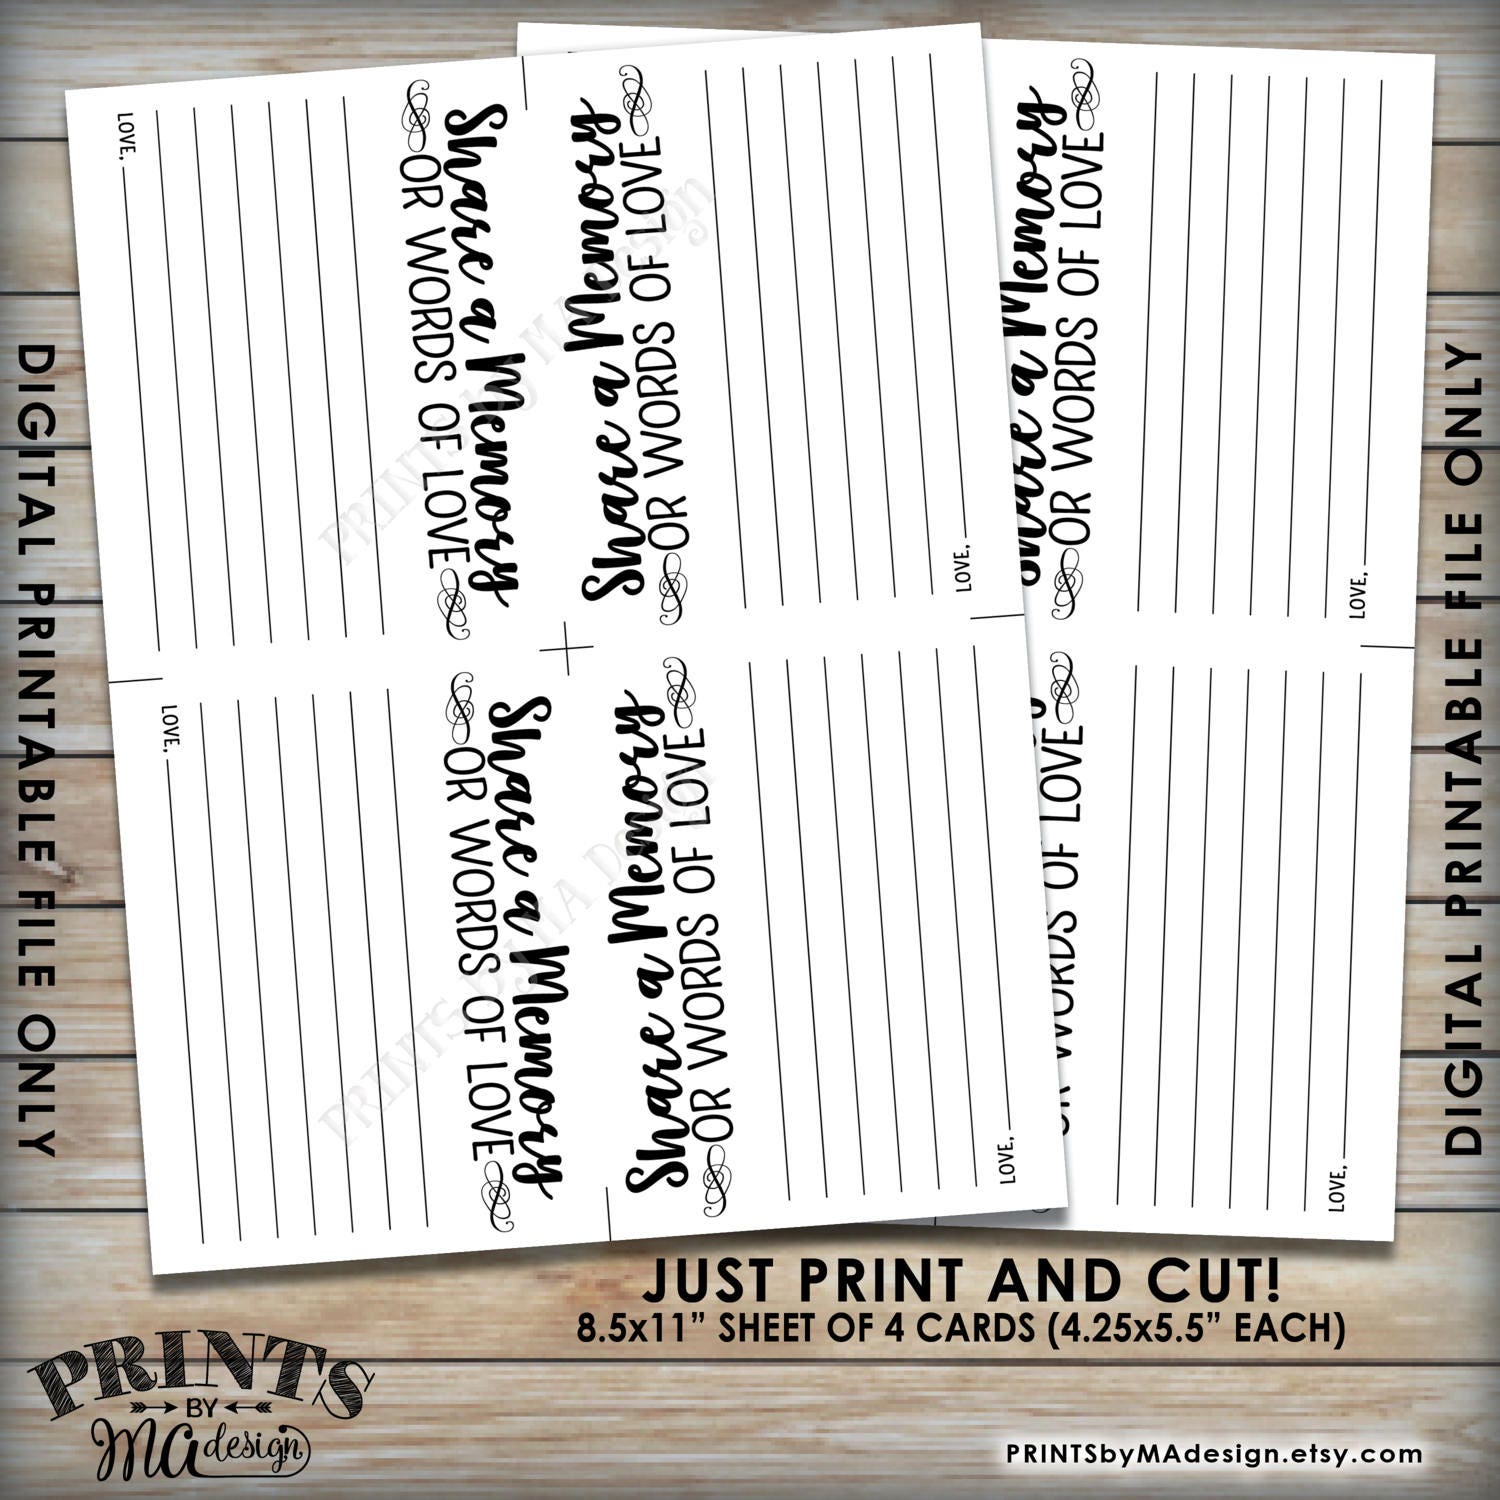 LOVE,
Share a Memory
OR WORDS OF LOVE
Share a Memory
OR WORDS OF LOVE
LOVE,
LOVE,
Share a Memory
OR WORDS OF LOVE
Share a Memory
OR WORDS OF LOVE
LOVE,
Share a Memory
OR WORDS OF LOVE
LOVE,
OR WORDS OF LOVE
LOVE,
PRINTS by MA Design
PRINTS by MA Design
DIGITAL PRINTABLE FILE ONLY
DIGITAL PRINTABLE FILE ONLY
JUST PRINT AND CUT!
8.5x11” SHEET OF 4 CARDS (4.25x5.5” EACH)
PRINTS
BY
MA design
PRINTSbyMAdesign.etsy.com